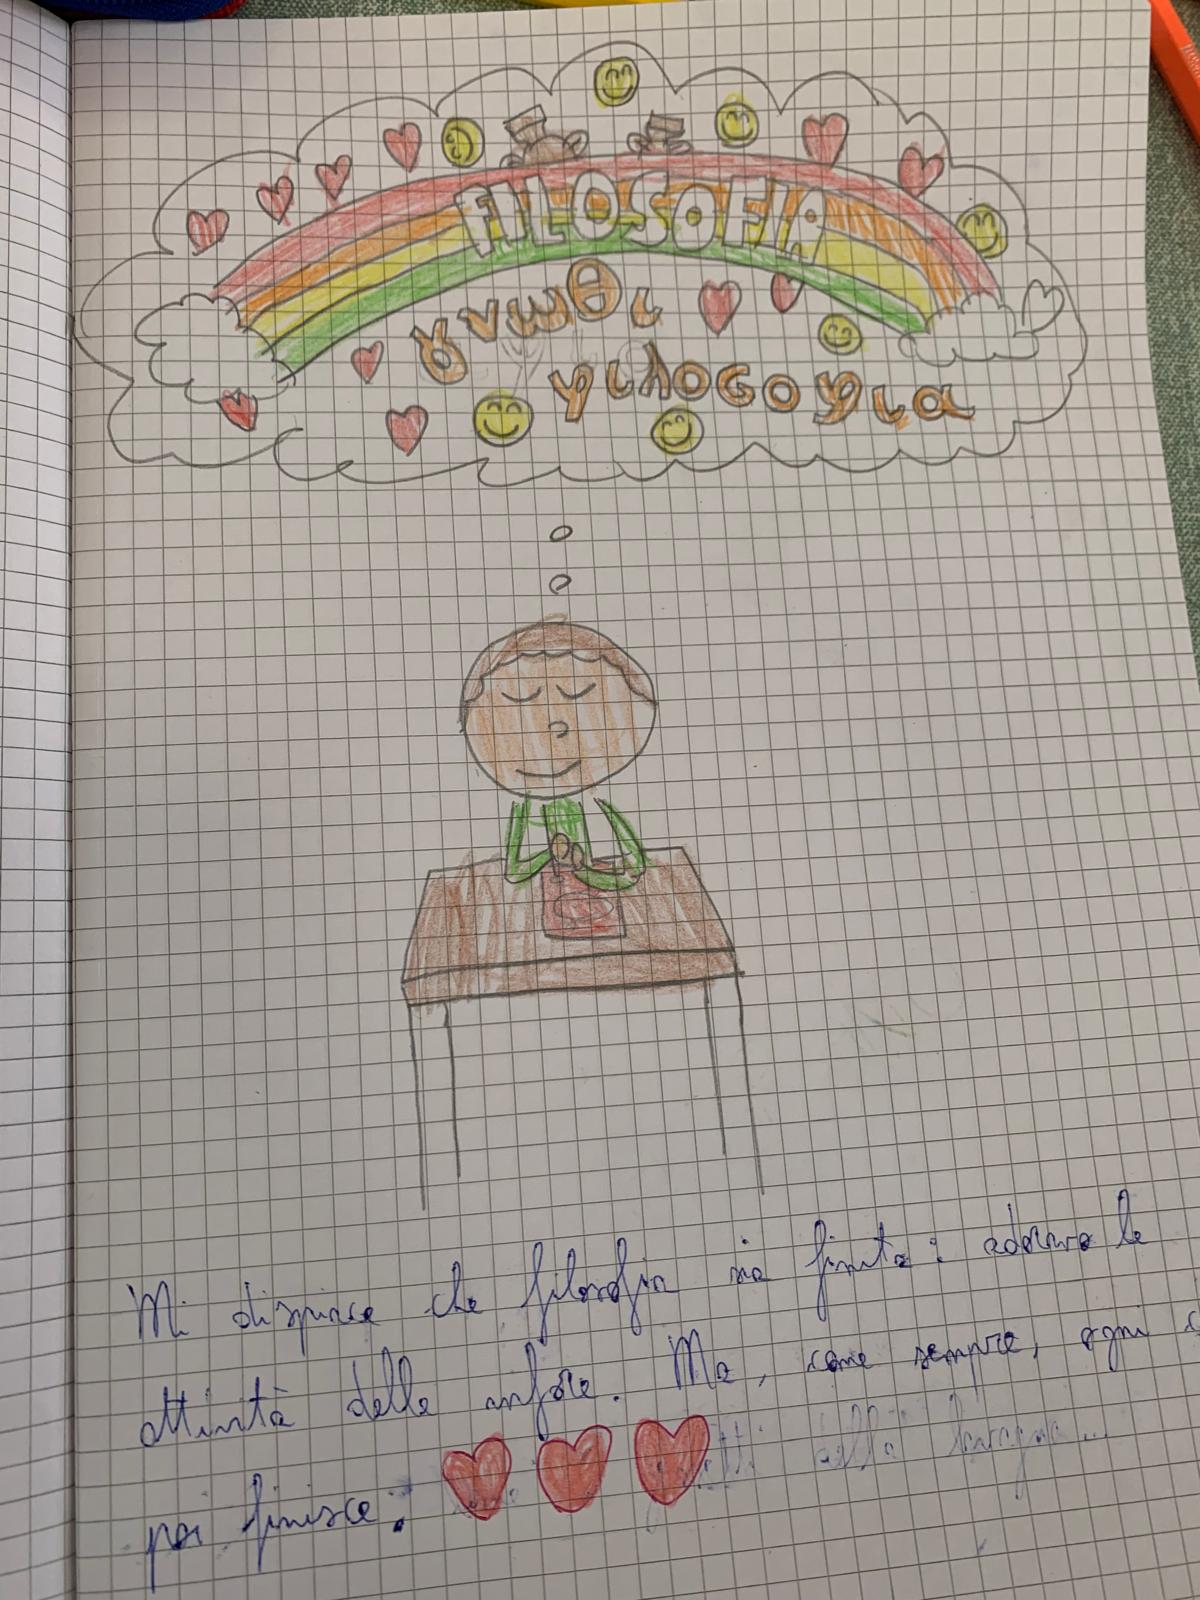 FILOSOFIA
φιλοσοφια
Mi dispiace che filosofia sia finita: adoravo le
attività delle anfore. Ma, come sempre, ogni c
poi finisce.